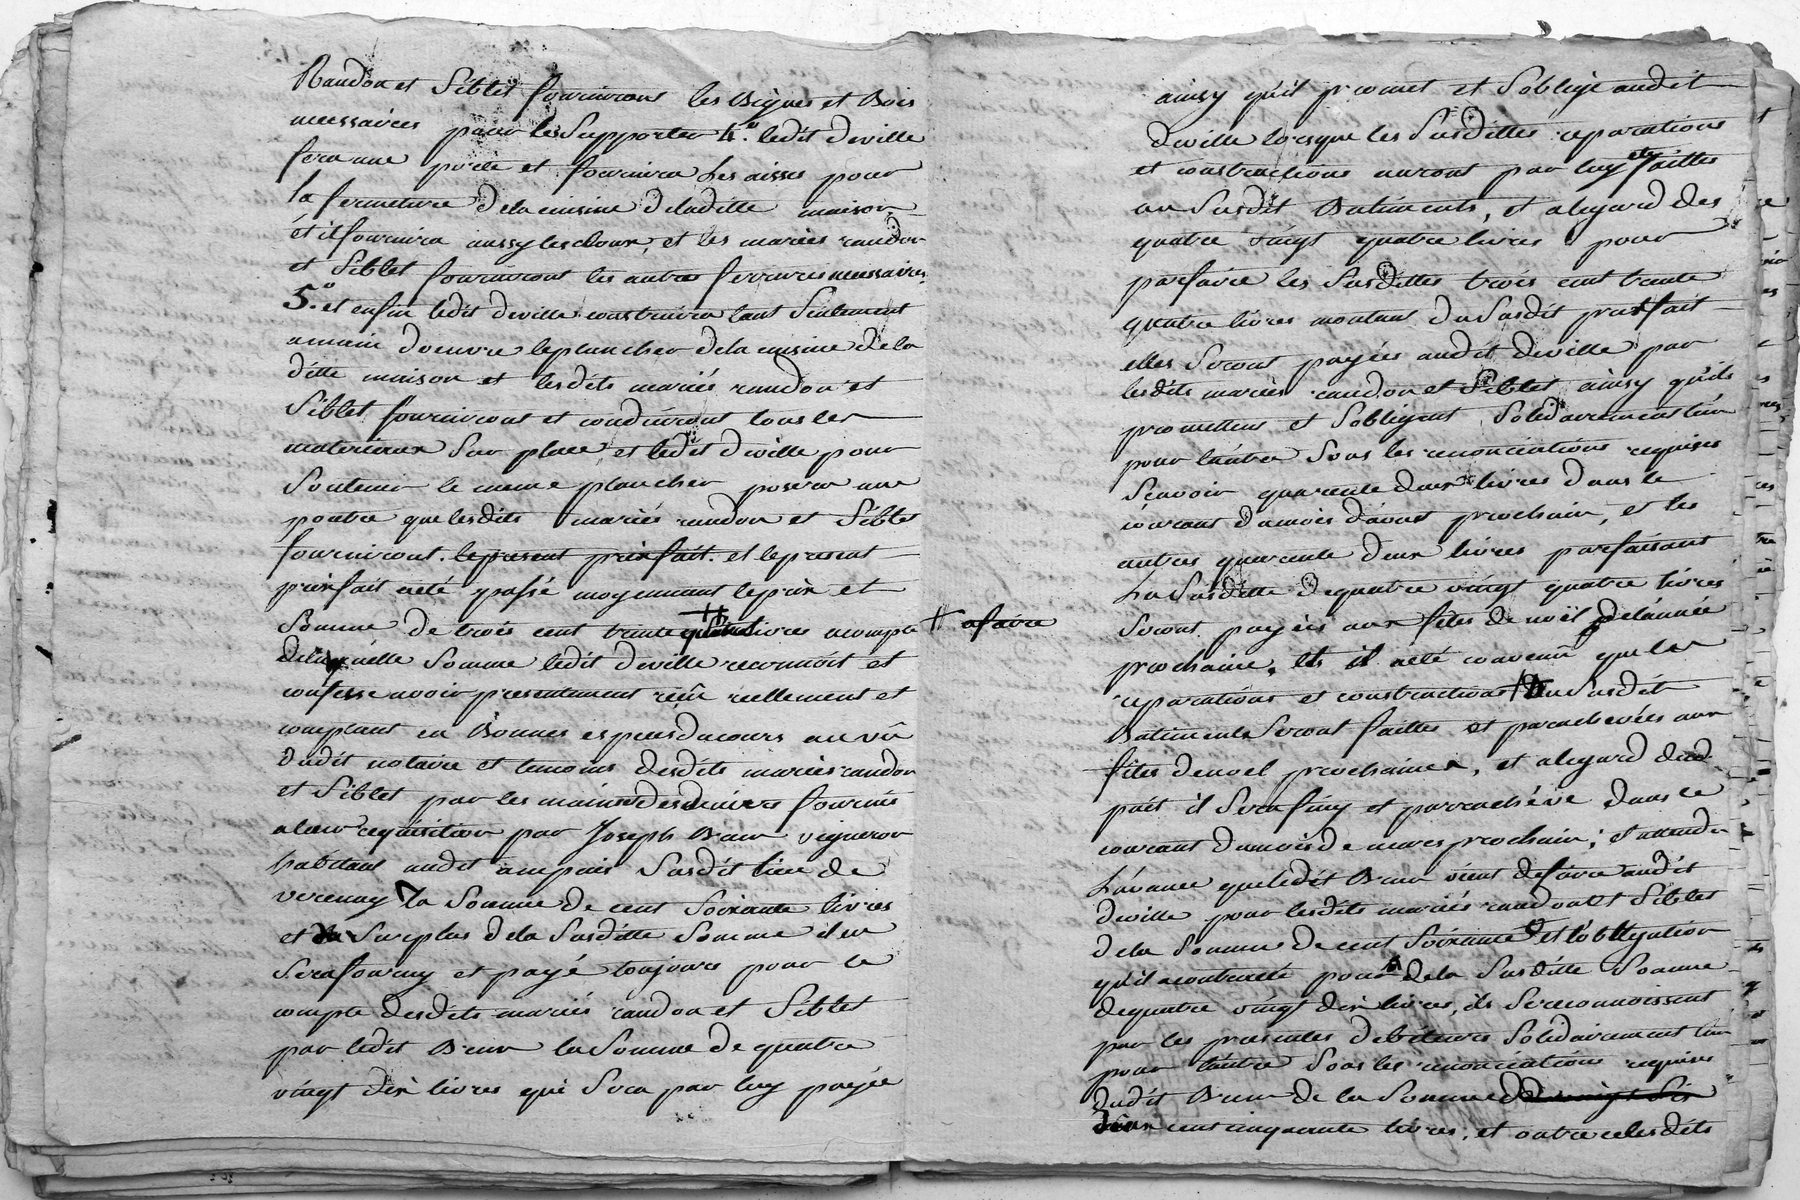 Raudon et Siblet fourniront les Bigues et Bois
necessaires pour les Supporter 4.° ledit deville
fera une porte et fournira les aisses pour
la fermeture dela cuisine deladitte maison,
et il fournira aussy les cloux, et les mariés raudon
et Siblet fourniront les autres ferrures necessaires.
5.° et enfin ledit deville construira tant Seulement
a main d'oeuvre le plancher dela cuisine de la
ditte maison et lesdits mariés raudon et
Siblet fourniront et conduiront tous les
materiaux Sur place et ledit deville pour
Soutenir le meme plancher posera une
poutre que lesdits mariés raudon et Siblet
fourniront. le present prixfait. et le present
prixfait a eté passé moyennant le prix et
Somme de trois cent trente quatre livres acompte
# afaire
delaquelle Somme ledit deville reconnoit et
confesse avoir presentement reçu reellement et
comptant en Bonnes especes du cours au vû
dudit notaire et temoins desdits mariés raudon
et Siblet par les mains des deniers fournis
a leur requisition par Joseph Brun vigneron
habitant audit Susdit lieu de
vercenay la Somme de cent Soixante livres
et Surplus dela Susditte Somme il en
Sera fourny et payé toujours pour le
compte desdits mariés raudon et Siblet
par ledit Brun la Somme de quatre
vingt dix livres qui Sera par luy payée
ainsy qu'il promet et Soblige audit
deville lorsque les Susdittes reparations
et constructions auront par luy eté faittes
au Susdit Batiments, et alegard des
quatre vingt quatre livres pour
parfaire les Susdittes trois cent trente
quatre livres montant du Susdit prixfait
elles Seront payées audit deville par
lesdits mariés raudon et Siblet, ainsy qu'ils
promettent et Sobligent Solidairement l'un
pour l'autre Sous les renonciations requises
Scavoir quarente deux livres dans le
courant du mois d'aoust prochain, et les
autres quarente deux livres parfaisant
la Susditte de quatre vingt quatre livres
Seront payées aux fêtes de noël de l'année
prochaine. Et il a eté convenû que les
reparations et constructions au Susdit
Batiments Seront faittes et parachevées aux
fêtes de noel prochaines, et alegard dud.
puit il Sera finy et parrachévé dans le
courant du mois de mars prochain; et attendu
l'avance que ledit Brun vient de faire audit
deville pour lesdits mariés raudon et Siblet
dela Somme de cent Soixante et l'obligation
qu'il a contracté pour dela Susditte Somme
de quatre vingt dix livres, ils Se reconnoissent
par les presentes debiteurs Solidairement l'un
pour l'autre Sous les renonciations requises
dudit Brun de la Somme de vingt Six
deux cent cinquante livres, et outre ce lesdits